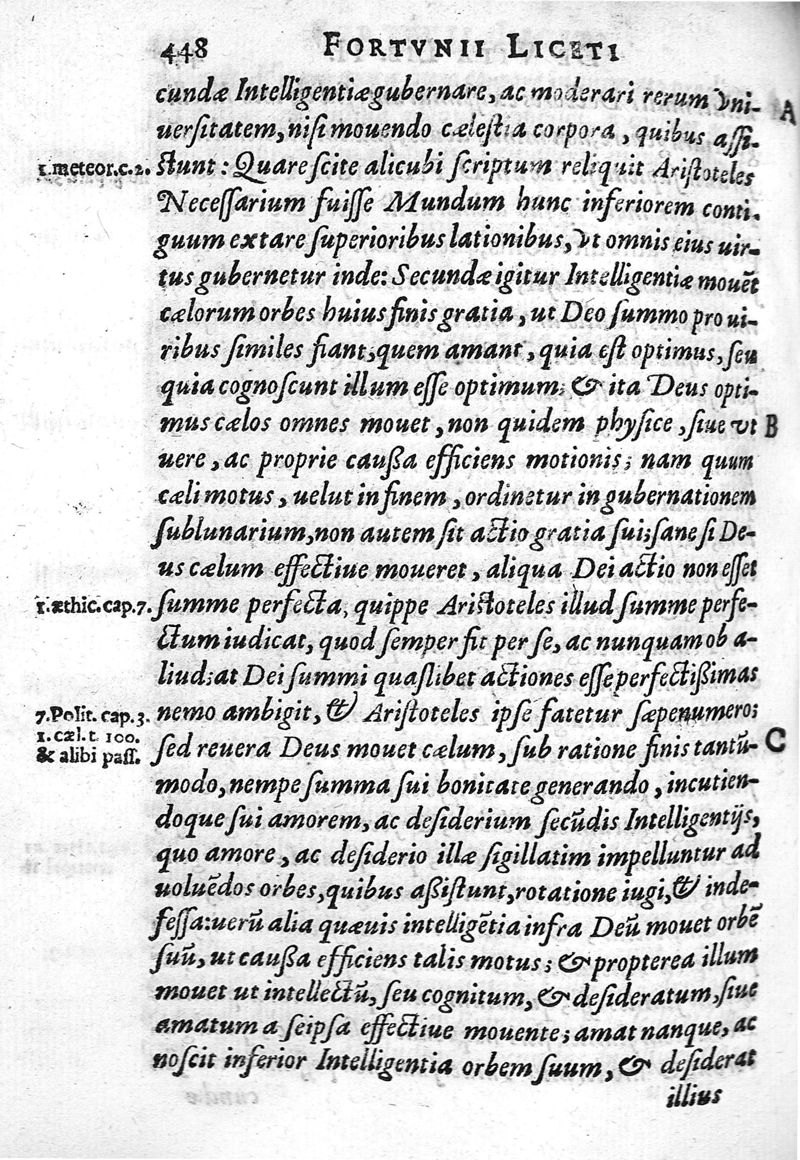 448 FORTVNII LICETI
cundæ Intelligentiæ gubernare, ac moderari rerum vni-
A
uerſitatem, niſi mouendo cæleſtia corpora, quibus aſſi-
1.meteor.c.2. ſtunt: Quare ſcite alicubi ſcriptum reliquit Ariſtoteles
Neceſſarium fuiſſe Mundum hunc inferiorem conti-
guum extare ſuperioribus lationibus, vt omnis eius uir-
tus gubernetur inde: Secundæ igitur Intelligentiæ mouẽt
cælorum orbes huius finis gratia, ut Deo ſummo pro ui-
ribus ſimiles fiant; quem amant, quia eſt optimus, ſeu
quia cognoſcunt illum eſſe optimum; & ita Deus opti-
mus cælos omnes mouet, non quidem phyſice, ſiue vt B
uere, ac proprie cauſſa efficiens motionis; nam quum
cæli motus, uelut in finem, ordinetur in gubernationem
ſublunarium, non autem ſit actio gratia ſui; ſane ſi De-
us cælum effectiue moueret, aliqua Dei actio non eſſet
1.æthic.cap.7. ſumme perfecta, quippe Ariſtoteles illud ſumme perfe-
ctum iudicat, quod ſemper fit per ſe, ac nunquam ob a-
liud; at Dei ſummi quaſlibet actiones eſſe perfectiſſimas
7.Polit. cap.3. nemo ambigit, & Ariſtoteles ipſe fatetur ſæpenumero;
1. cæl.t. 100.
& alibi paſſ. ſed reuera Deus mouet cælum, ſub ratione finis tantũ- C
modo, nempe ſumma ſui bonitate generando, incutien-
doque ſui amorem, ac deſiderium ſecũdis Intelligentijs,
quo amore, ac deſiderio illæ ſigillatim impelluntur ad
uoluẽdos orbes, quibus aſſiſtunt, rotatione iugi, & inde-
feſſa: uerũ alia quæuis intelligẽtia infra Deũ mouet orbẽ
ſuũ, ut cauſſa efficiens talis motus; & propterea illum
mouet ut intellectũ, ſeu cognitum, & deſideratum, ſiue
amatum a ſeipſa effectiue mouente; amat nanque, ac
noſcit inferior Intelligentia orbem ſuum, & deſiderat
illius